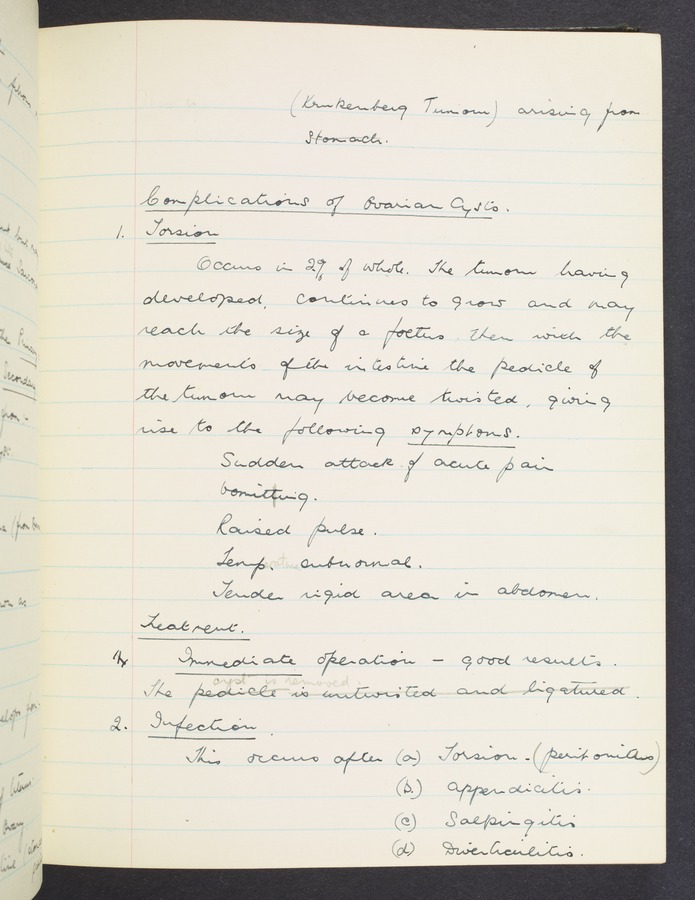 (Krukenberg Tumour) arising from
Stomach.
Complications of Ovarian Cysts.
1. Torsion
Occurs in 2% of whole. The tumour having
developed, continues to grow and may
reach the size of a foetus. Then with the
movements of the intestine the pedicle of
the tumour may become twisted, giving
rise to the following symptoms.
Sudden attack of acute pain
Vomitting.
Raised pulse.
Temp. subnormal.
Tender rigid area in abdomen.
Treatment.
Immediate operation – good results.
cyst is removed.
The pedicle is untwisted and ligatured.
2. Infection.
This occurs after (a) Torsion - (peritonitis)
(b) appendicitis.
(c) Salpingitis
(d) Diverticulitis.